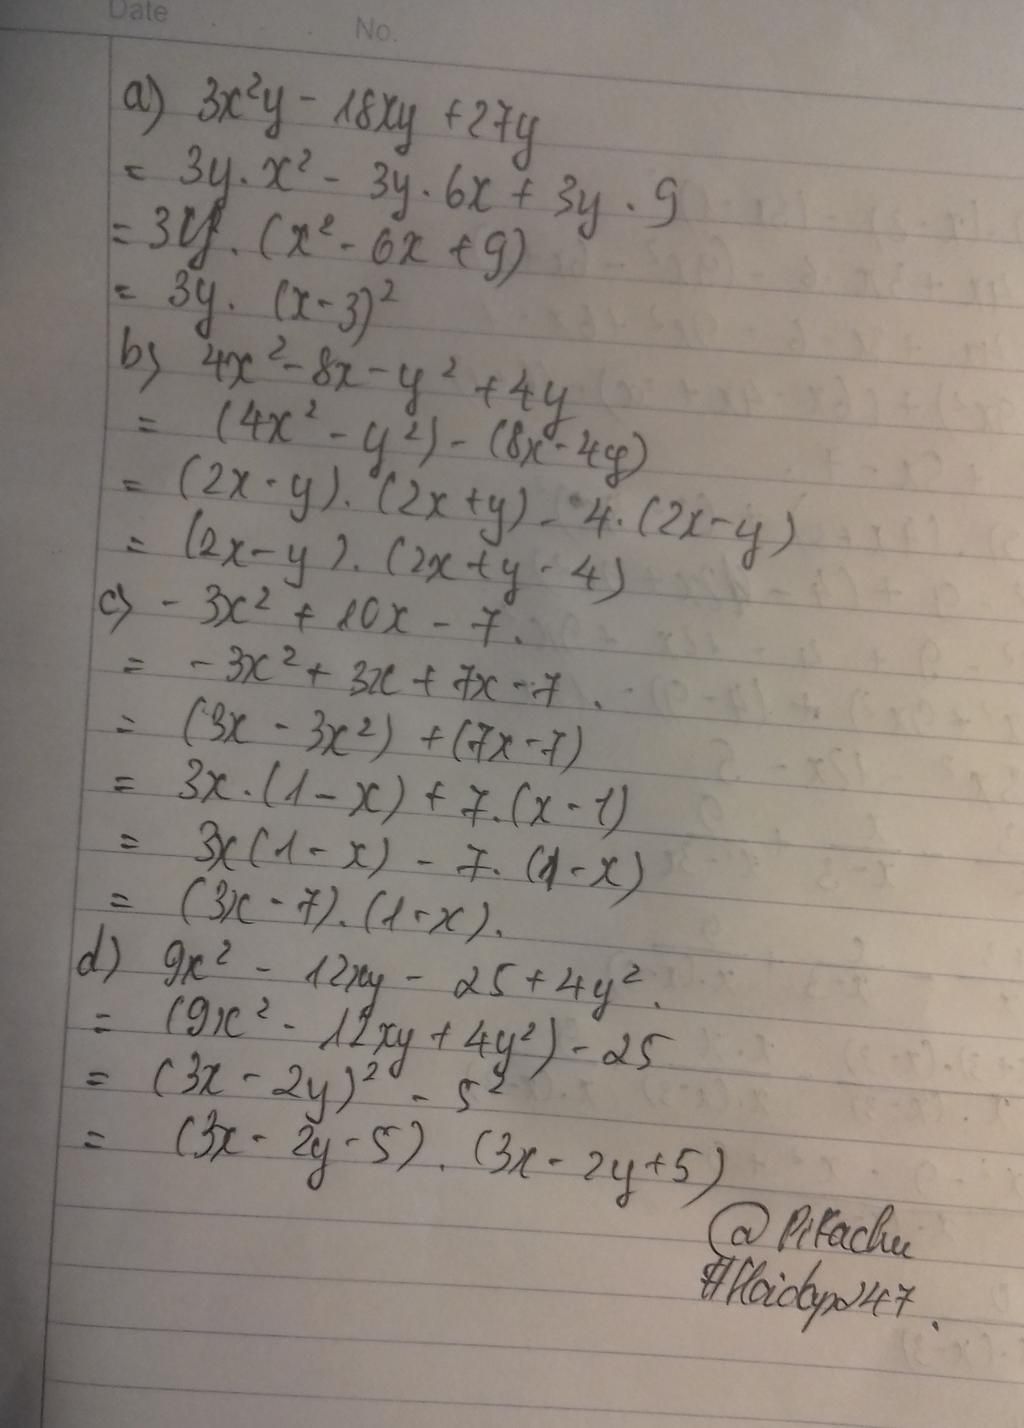 Date
No.
a) 3x²y - 18xy + 27y
= 3y . x² - 3y . 6x + 3y . 9
= 3y . (x² - 6x + 9)
= 3y . (x - 3)²
b) 4x² - 8x - y² + 4y
= (4x² - y²) - (8x - 4y)
= (2x - y) . (2x + y) - 4 . (2x - y)
= (2x - y) . (2x + y - 4)
c) - 3x² + 10x - 7.
= - 3x² + 3x + 7x - 7.
= (3x - 3x²) + (7x - 7)
= 3x . (1 - x) + 7 . (x - 1)
= 3x (1 - x) - 7 . (1 - x)
= (3x - 7) . (1 - x).
d) 9x² - 12xy - 25 + 4y².
= (9x² - 12xy + 4y²) - 25
= (3x - 2y)² - 5²
= (3x - 2y - 5) . (3x - 2y + 5)
@Pikachu